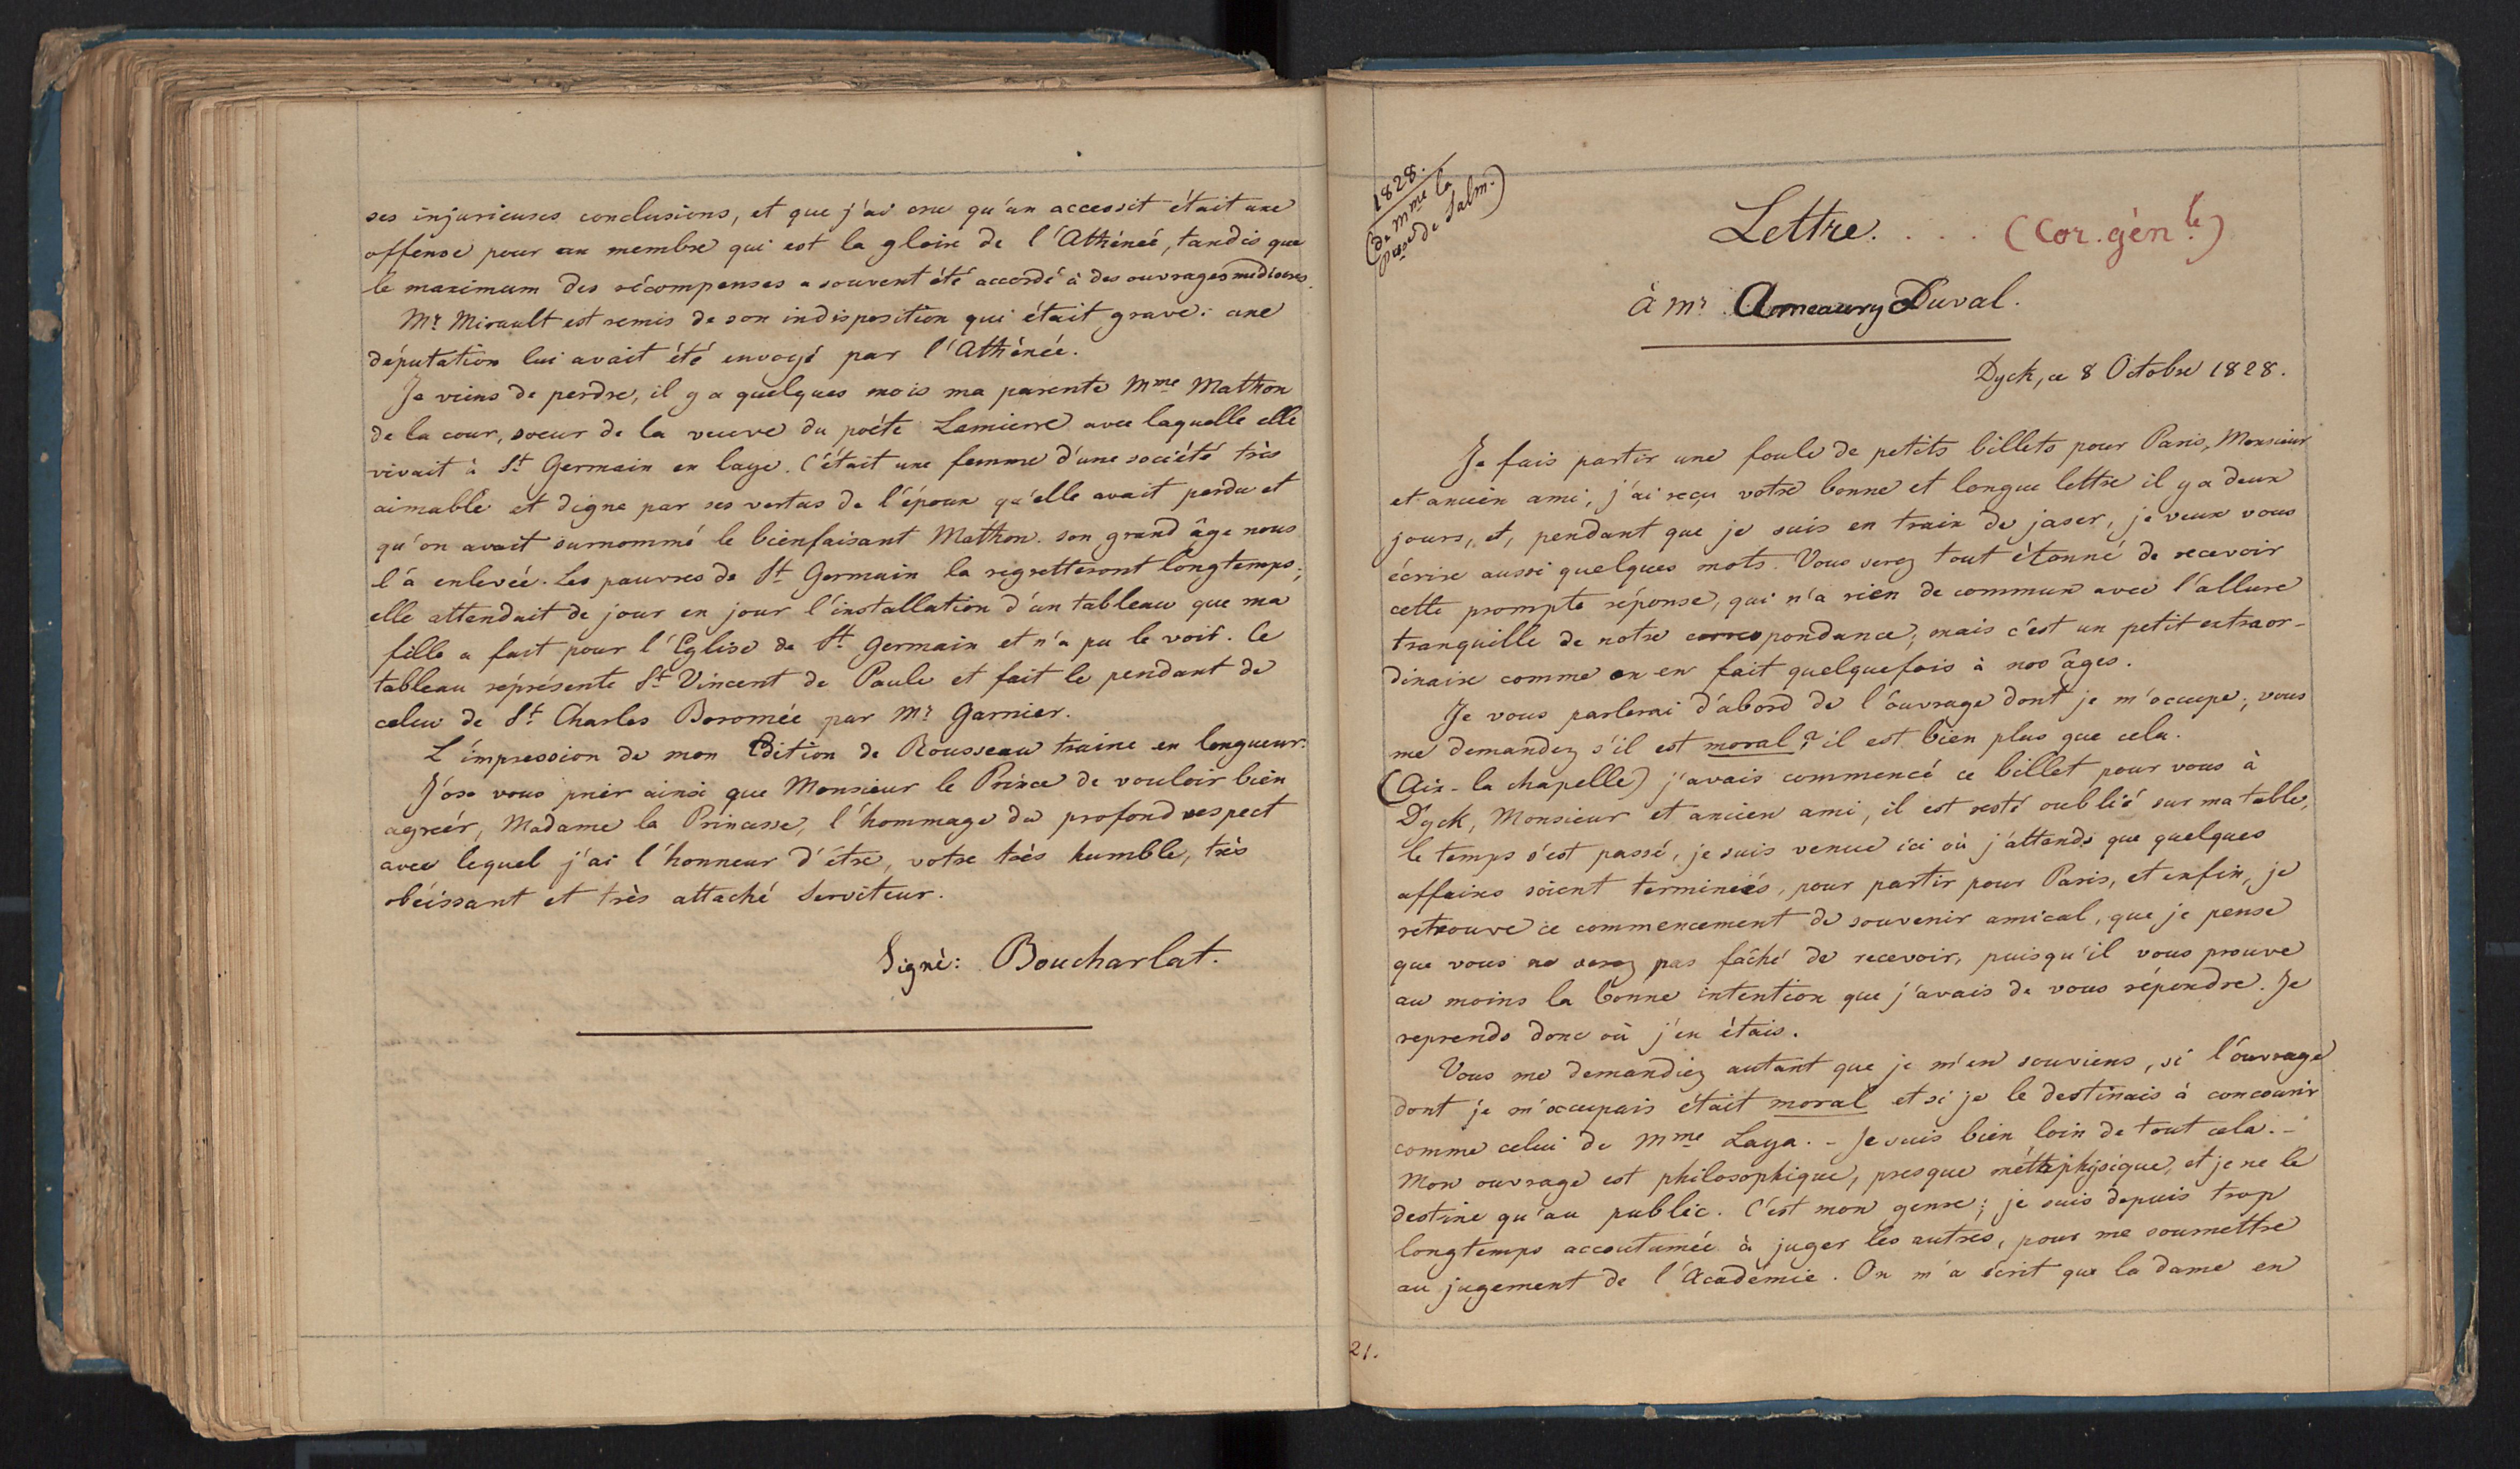 ses injurieuses conclusions, et que j'ai cru qu'un accessit était une
offense pour un membre qui est la gloire de l'Athénée, tandis que
le maximum des récompenses a souvent été accordé à des ouvrages médiocres.
Mr Mirault est remis de son indisposition qui était grave: une
députation lui avait été envoyé par l'Athénée.
Je viens de perdre, il y a quelques mois ma parente Mme Mathon
de la cour, soeur de la veuve du poéte Lemierre avec laquelle elle
vivait à St Germain en laye. C'était une femme d'une société très
aimable et digne par ses vertus de l'époux qu'elle avait perdu et
qu'on avait surnommé le bienfaisant Mathon. son grand âge nous
l'a enlevée. Les pauvres de St Germain la regretteront longtemps;
elle attendait de jour en jour l'installation d'un tableau que ma
fille a fait pour l'Eglise de St Germain et n'a pu le voir. Ce
tableau représente St Vincent de Paule et fait le pendant de
celui de St Charles Boromée par Mr Garnier.
L'impression de mon Edition de Rousseau traine en longueur.
J'ose vous prier ainsi que Monsieur le Prince de vouloir bien
agréer, Madame la Princesse, l'hommage du profond respect
avec lequel j'ai l'honneur d'être, votre très humble, très
obéissant et très attaché Serviteur.
Signé: Boucharlat.
1828.
(de Mme la
Psse de Salm.)
Lettre. . . . (Cor. génle)
à Mr Ameaury Duval.
Dyck, ce 8 Octobre 1828.
Je fais partir une foule de petits billets pour Paris, Monsieur
et ancien ami, j'ai reçu votre bonne et longue lettre il y a deux
jours, et, pendant que je suis en train de jaser, je veux vous
écrire aussi quelques mots. Vous serez tout étonné de recevoir
cette prompte réponse, qui n'a rien de commun avec l'allure
tranquille de notre correspondance; mais c'est un petit extraor-
dinaire comme on en fait quelquefois à nos âges.
Je vous parlerai d'abord de l'ouvrage dont je m'occupe; vous
me demandez s'il est moral? il est bien plus que cela.
(Aix-la chapelle) j'avais commencé ce billet pour vous à
Dyck, Monsieur et ancien ami, il est resté oublié sur ma table,
le temps s'est passé, je suis venue ici où j'attends que quelques
affaires soient terminées, pour partir pour Paris, et enfin, je
retrouve ce commencement de souvenir amical, que je pense
que vous ne serez pas fâché de recevoir, puisqu'il vous prouve
au moins la bonne intention que j'avais de vous répondre. Je
reprends donc où j'en étais.
Vous me demandiez autant que je m'en souviens, si l'ouvrage
dont je m'occupais était moral et si je le destinais à concourir
comme celui de Mme Laya. - Je suis bien loin de tout cela. -
Mon ouvrage est philosophique, presque métaphysique, et je ne le
destine qu'au public. C'est mon genre; je suis depuis trop
longtemps accoutumée à juger les autres, pour me soumettre
au jugement de l'Académie. On m'a écrit que la dame en
21.